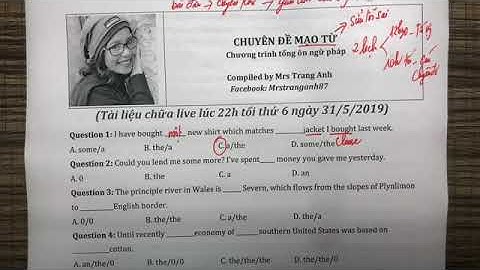 CHUYÊN ĐỀ MẠO TỪ
Chương trình tổng ôn ngữ pháp
Compiled by Mrs Trang Anh
Facebook: Mrstranganh87
(Tài liệu chữa live lúc 22h tối thứ 6 ngày 31/5/2019)
Question 1: I have bought một new shirt which matches ______jacket I bought last week.
A. some/a B. the/a C. a/the D. some/the
Question 2: Could you lend me some more? I've spent____ money you gave me yesterday.
A. 0 B. the C. a D. an
Question 3: The principle river in Wales is _____ Severn, which flows from the slopes of Plynlimon
to________English border.
A. 0/0 B. the/the C. a/the D. the/a
Question 4: Until recently ______economy of _____southern United States was based on
________cotton.
A. an/the/0 B. the/0/0 C. the/the/the D. the/the/0